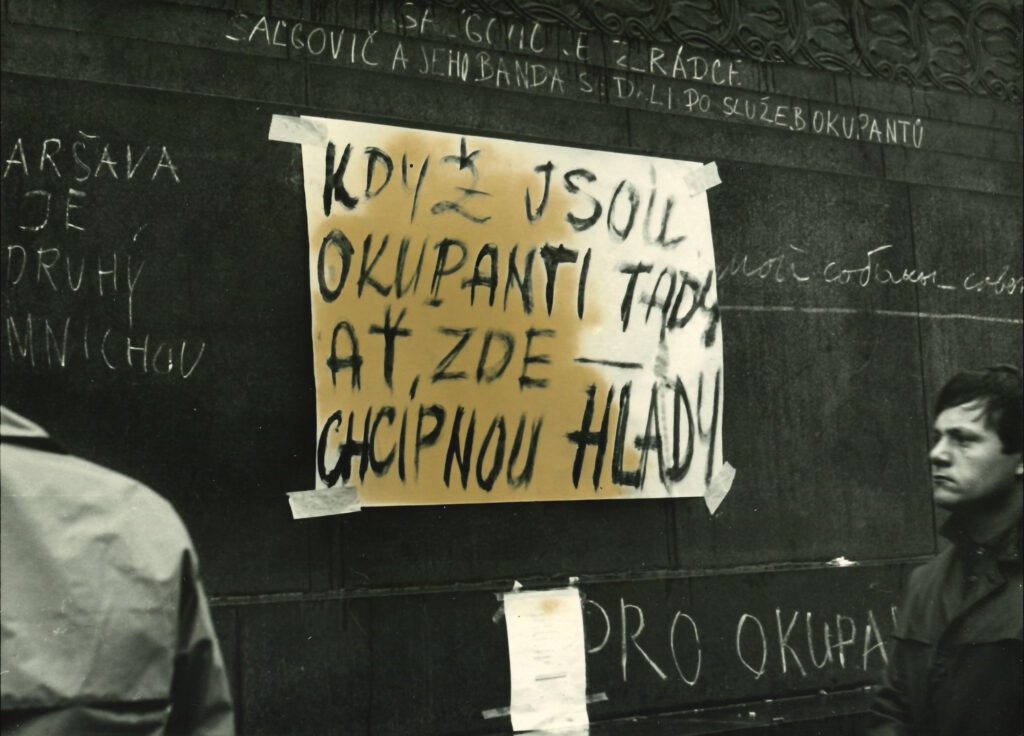 ŠALGOVIČ JE ZRÁDCE
ŠALGOVIČ A JEHO BANDA SE DALI DO SLUŽEB OKUPANTŮ
ARŠAVA
JE
DRUHÝ
MNICHOV
KDYŽ JSOU
OKUPANTI TADY
AŤ ZDE —
CHCÍPNOU HLADY
мой собаки
PRO OKUPA